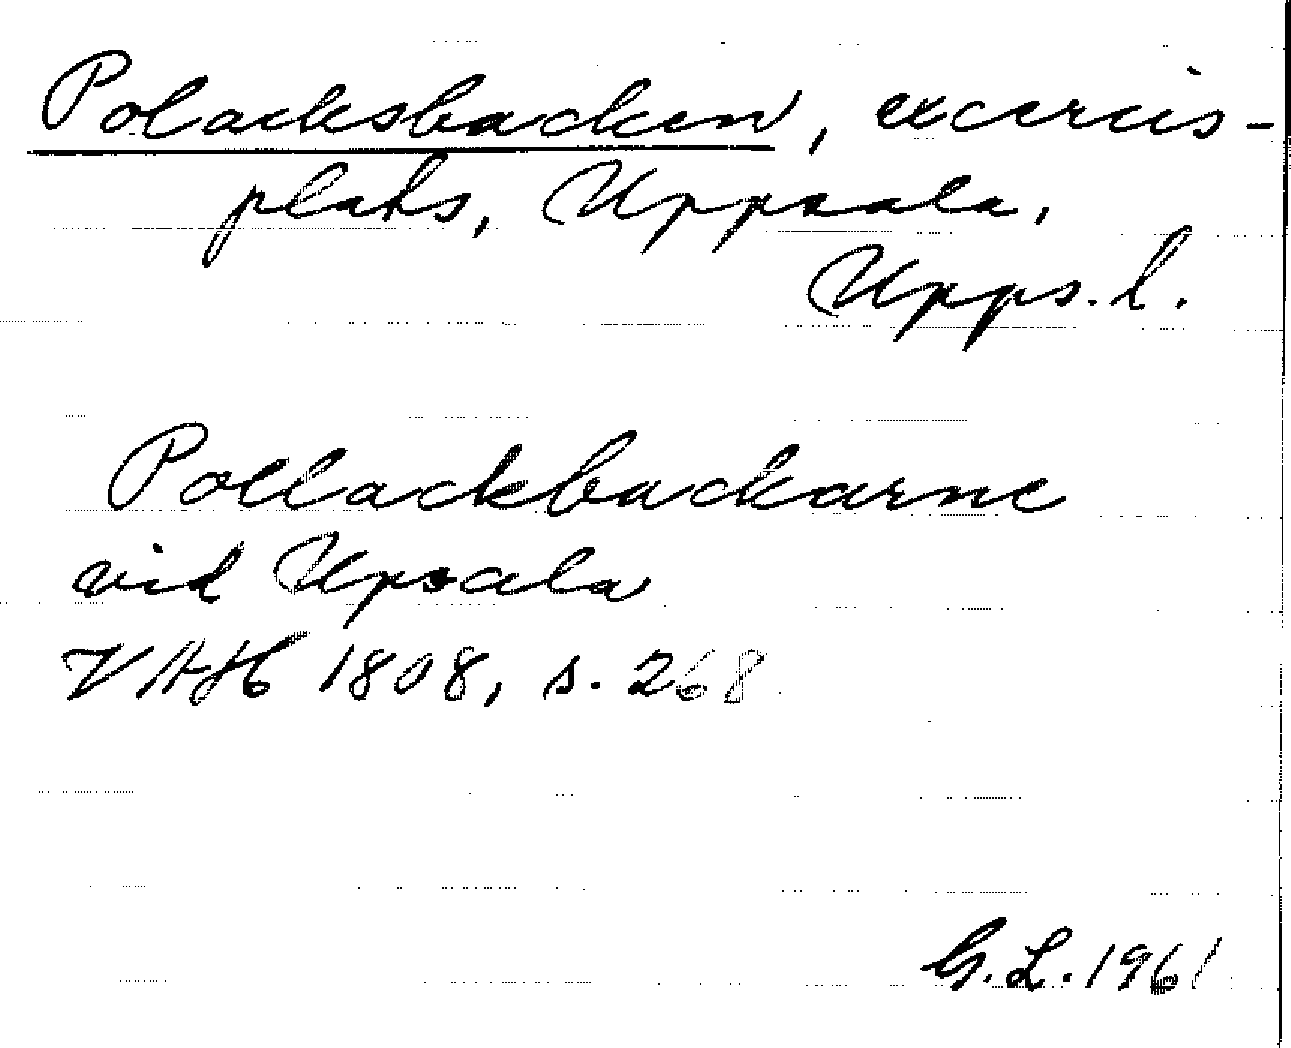 Polacksbacken, excercis-
plats, Uppsala,
Upps. l.
Pollackbackarne
vid Upsala
VAH 1808, s. 268.
G. L. 1961